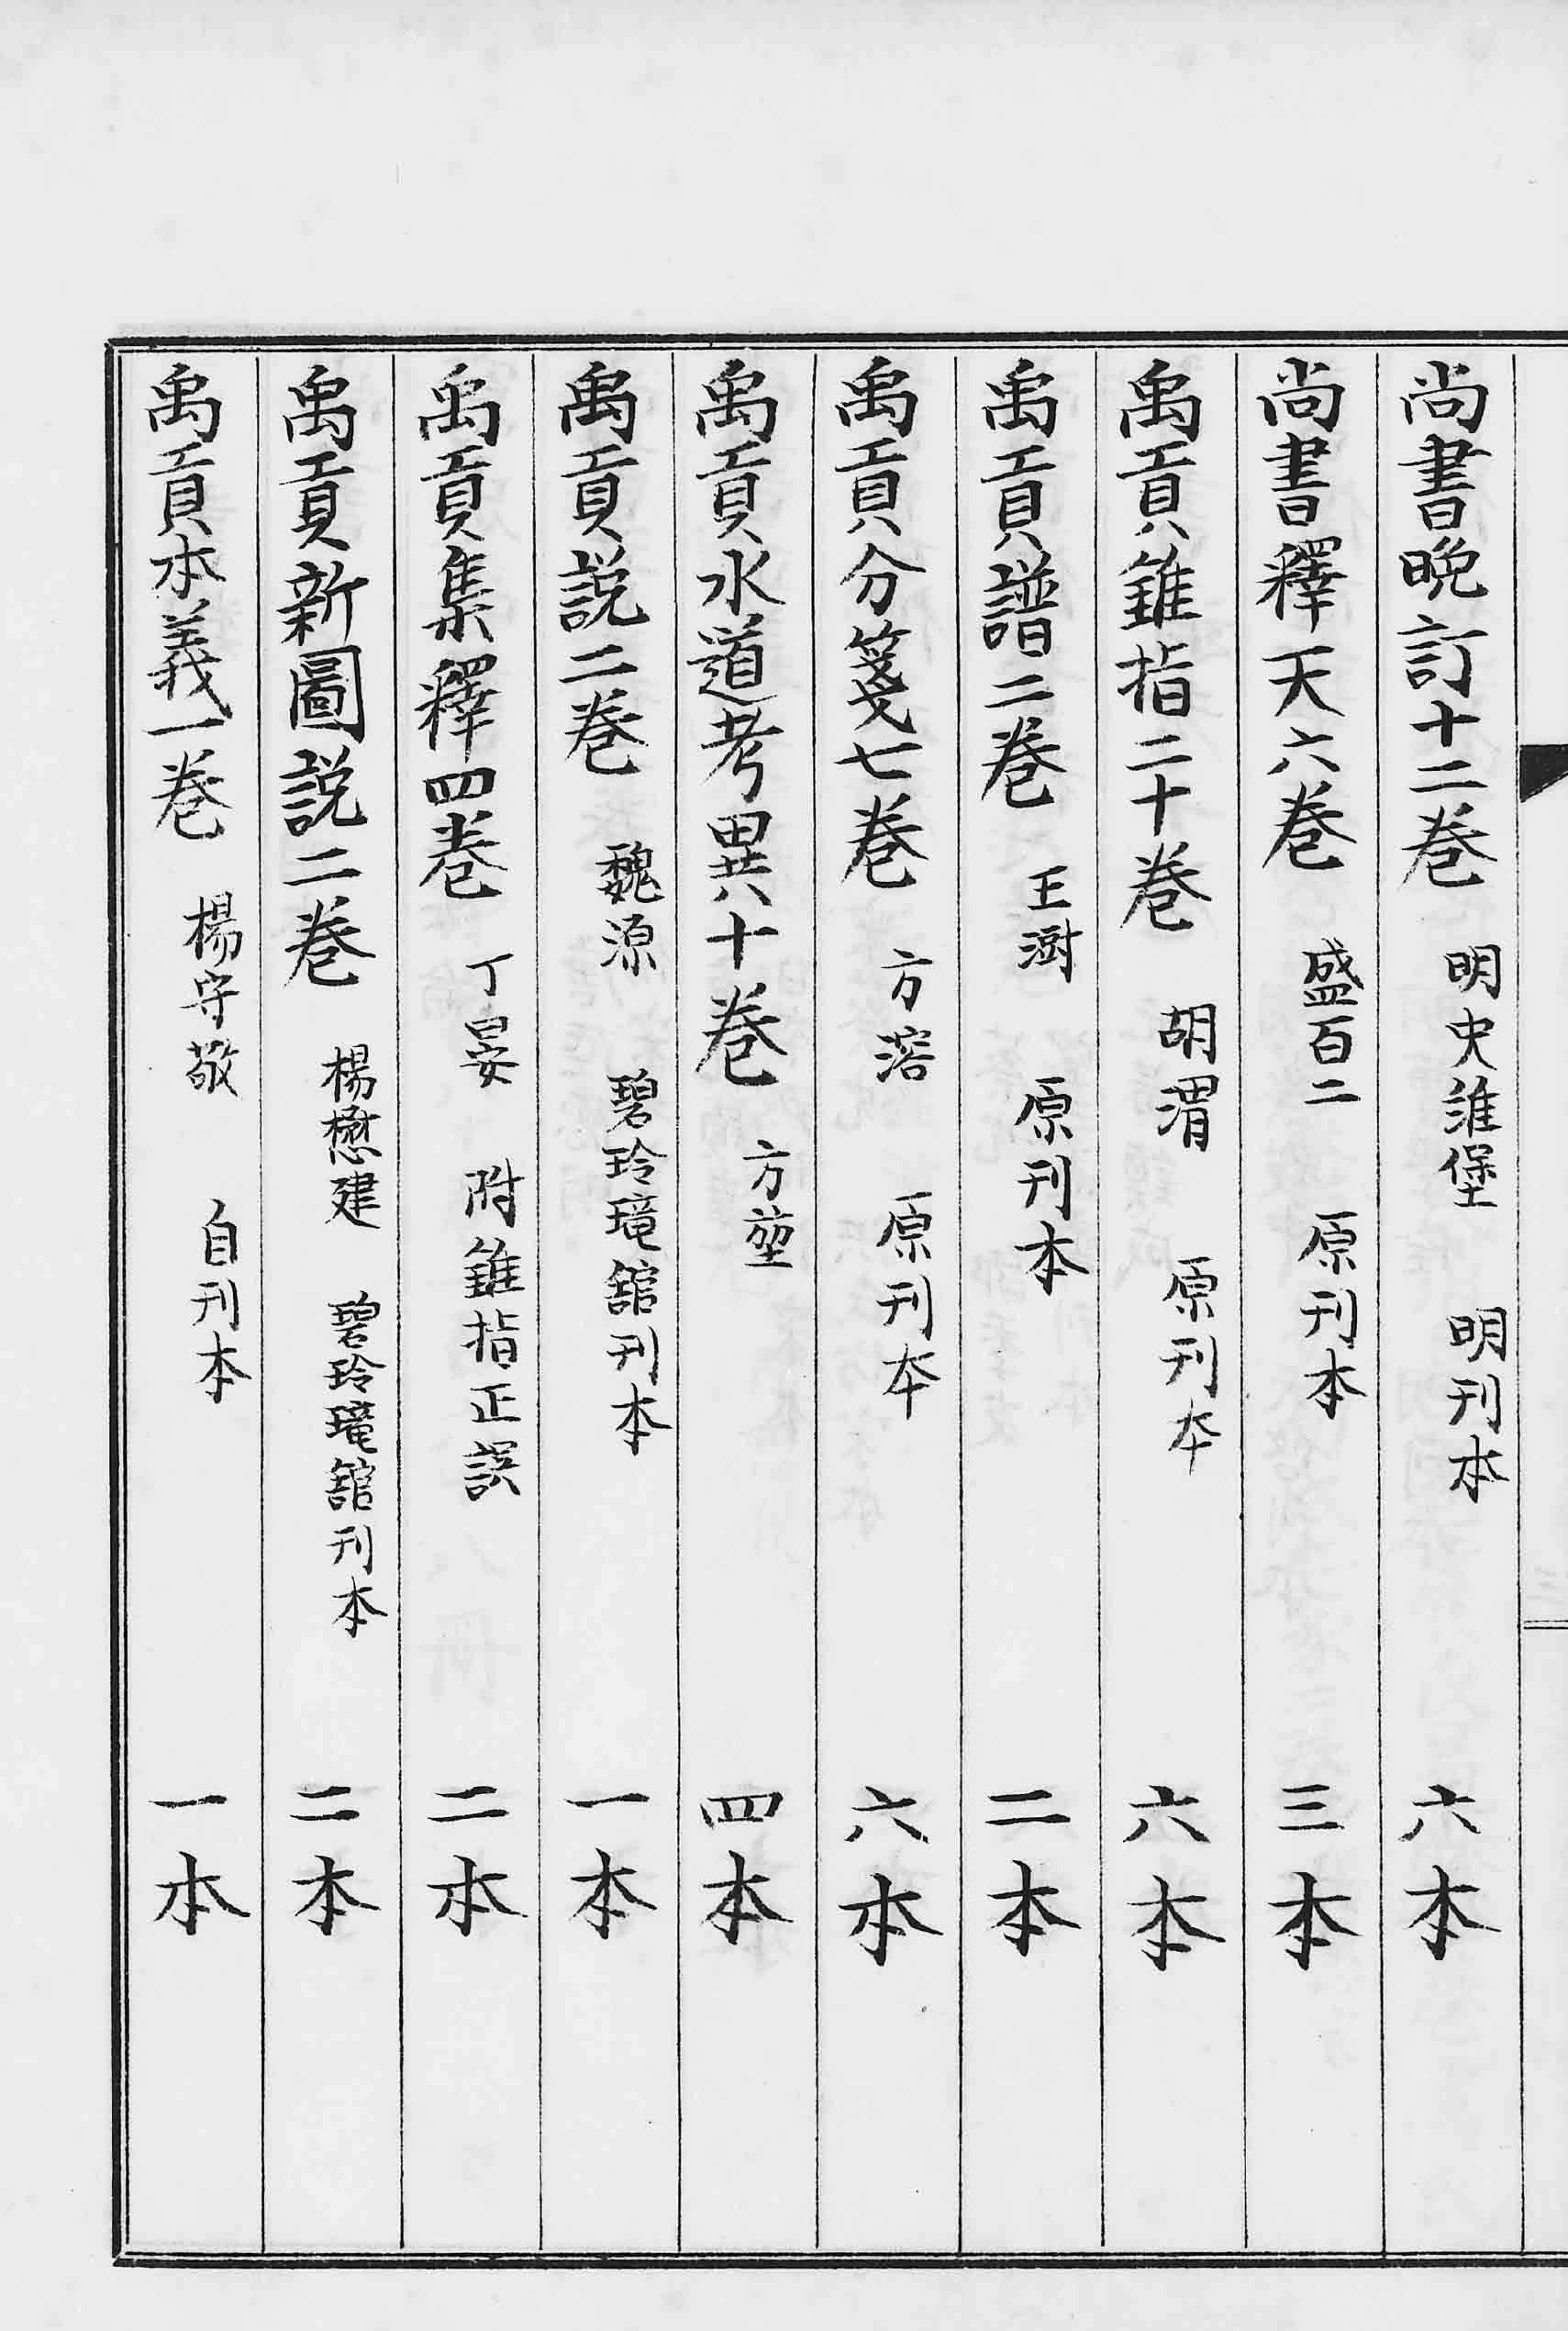 尚書晚訂十二卷 明史維堡 明刊本 六本
尚書釋天六卷 盛百二 原刊本 三本
禹貢錐指二十卷 胡渭 原刊本 六本
禹貢譜二卷 王澍 原刊本 二本
禹貢分箋七卷 方溶 原刊本 六本
禹貢水道考異十卷 方堃 四本
禹貢説二卷 魏源 碧玲瓏館刊本 一本
禹貢集釋四卷 丁晏 附錐指正誤 二本
禹貢新圖説二卷 楊懋建 碧玲瓏館刊本 二本
禹貢本義一卷 楊守敬 自刊本 一本